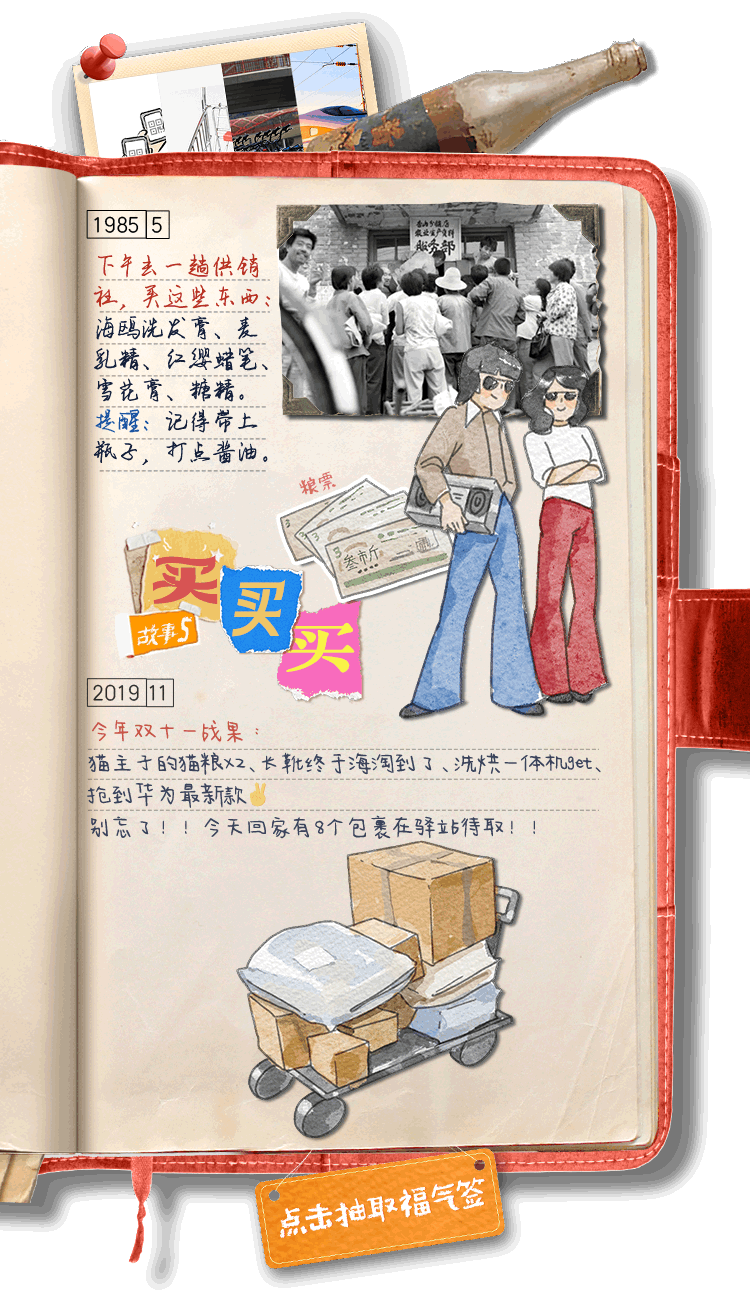 1985 5
下午去一趟供销
社，买这些东西：
海鸥洗发膏、麦
乳精、红缨蜡笔、
雪花膏、糖精。
提醒：记得带上
瓶子，打点酱油。
服务部
粮票
叁市斤
买
买
买
故事5
2019 11
今年双十一战果：
猫主子的猫粮x2、长靴终于海淘到了、洗烘一体机get、
抢到华为最新款✌
别忘了！！今天回家有8个包裹在驿站待取！！
点击抽取福气签